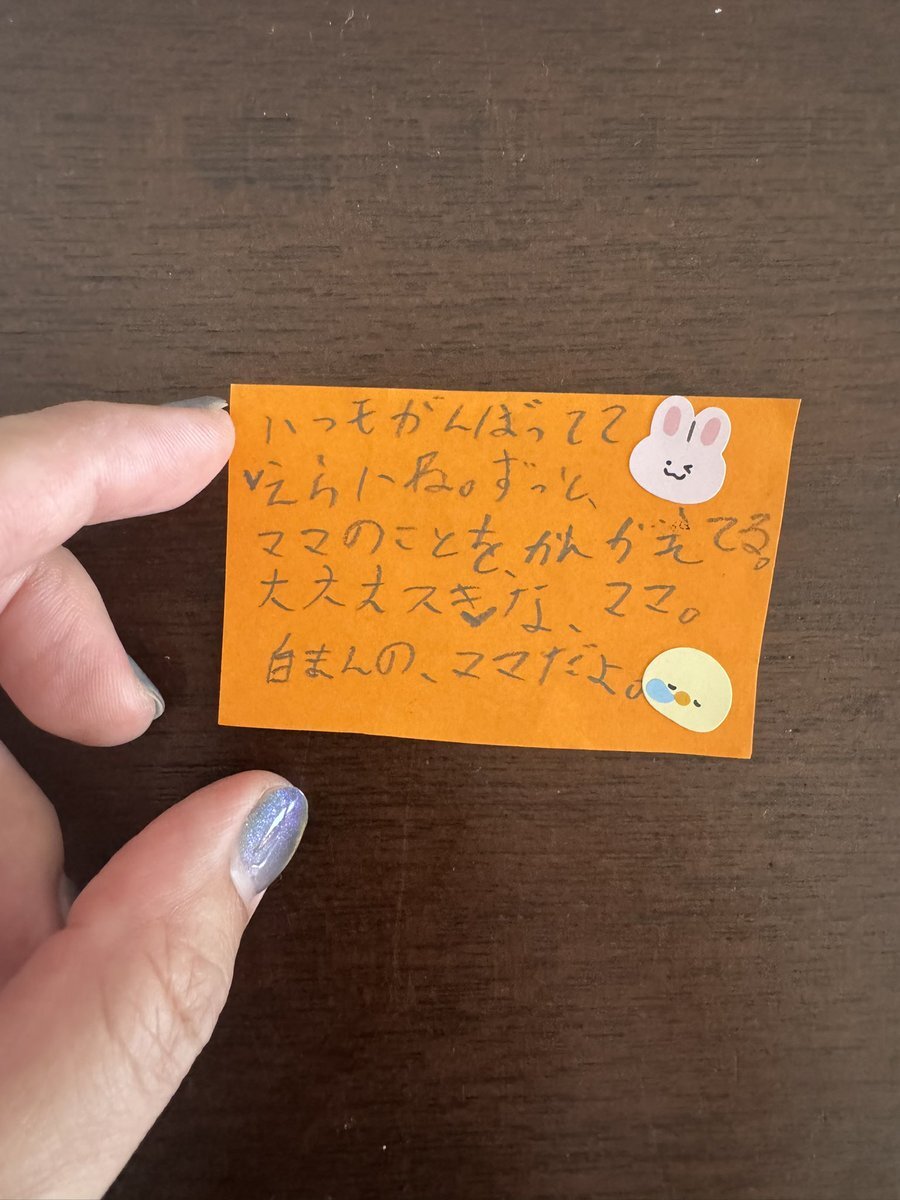 いつもがんばってて
♥えらいね。ずっと、
ママのことを、かんがえてる。
大大大スき♥な、ママ。
自まんの、ママだよ。